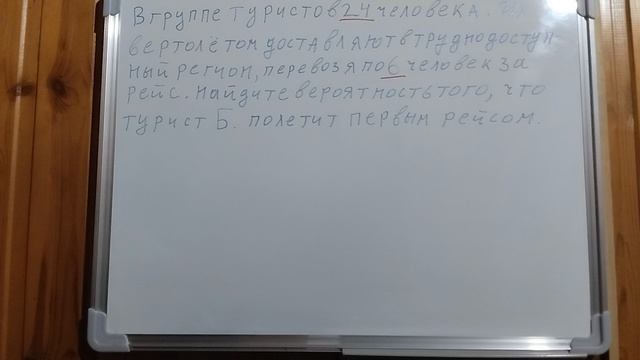 В группе туристов 24 человека. Их
вертолётом доставляют в труднодоступ-
ный регион, перевозя по 6 человек за
рейс. Найдите вероятность того, что
турист Б. полетит первым рейсом.